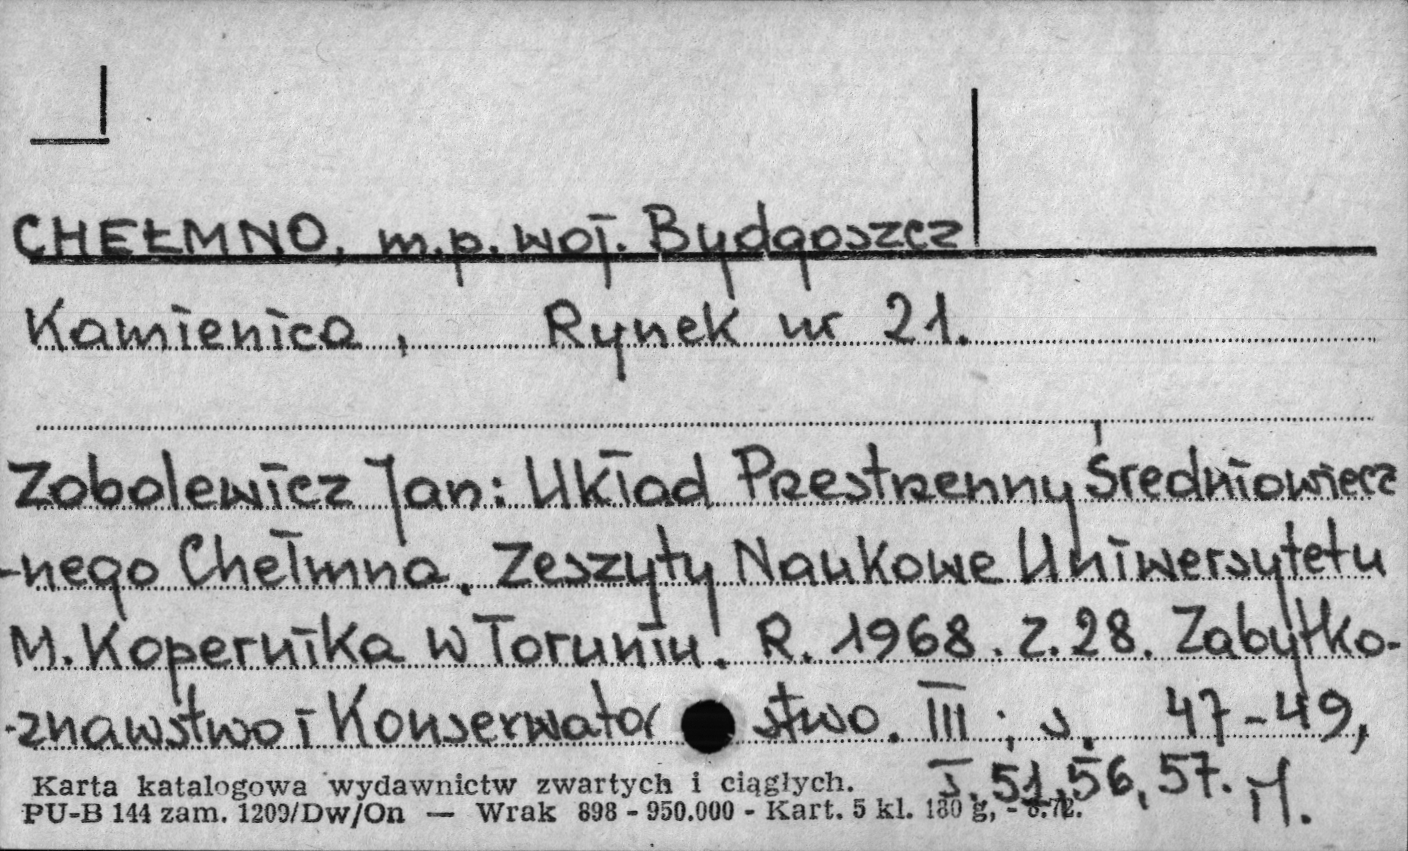 CHEŁMNO, m.p. woj. Bydgoszcz
Kamienica, Rynek nr 21.
Zobolewicz Jan: Układ Przestrzenny Średniowiecz
-nego Chełmna. Zeszyty Naukowe Uniwersytetu
M. Kopernika w Toruniu. R. 1968. Z. 28. Zabytko-
-znawstwo i Konserwator stwo. III ; s. 47-49,
51, 56, 57. il.
Karta katalogowa wydawnictw zwartych i ciągłych.
PU-B 144 zam. 1209/Dw/On — Wrak 898 - 950.000 - Kart. 5 kl. 180 g,